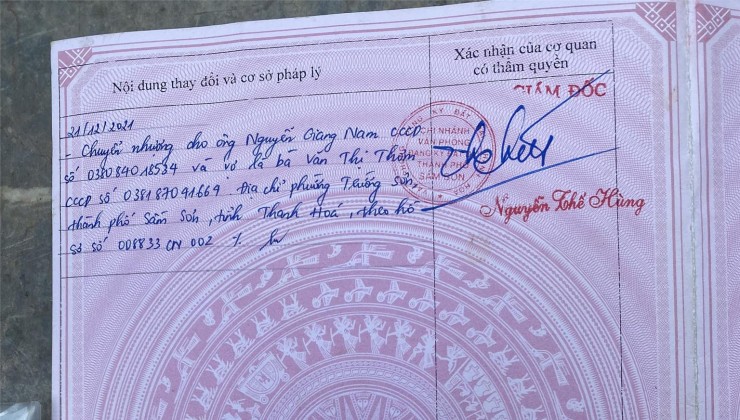 Nội dung thay đổi và cơ sở pháp lý
Xác nhận của cơ quan
có thẩm quyền
21/12/2021
- Chuyển nhượng cho ông Nguyễn Giang Nam CCCD
số 038084018534 và vợ là bà Văn Thị Thơm
CCCD số 038187091669. Địa chỉ phường Trường Sơn,
thành phố Sầm Sơn, tỉnh Thanh Hoá, theo hồ
sơ số 008833 CN 002 ./.
GIÁM ĐỐC
CHI NHÁNH
VĂN PHÒNG
ĐĂNG KÝ ĐẤT ĐAI
THÀNH PHỐ
SẦM SƠN
Nguyễn Thế Hùng